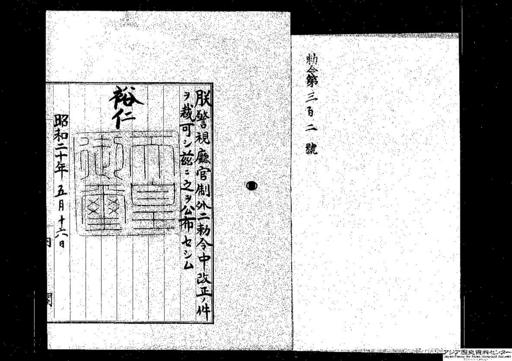 勅令第三百二號
朕警視廳官制外二勅令中改正ノ件
ヲ裁可シ茲ニ之ヲ公布セシム
裕仁
天皇御璽
昭和二十年五月十六日
内閣
アジア歴史資料センター